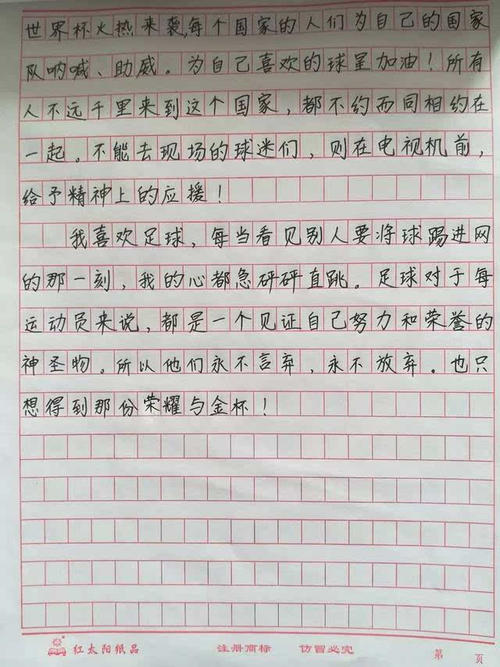 世界杯火热来袭,每个国家的人们为自己的国家
队呐喊、助威。为自己喜欢的球星加油！所有
人不远千里来到这个国家，都不约而同相约在
一起。不能去现场的球迷们，则在电视机前，
给予精神上的应援！
我喜欢足球，每当看见别人要将球踢进网
的那一刻，我的心都急砰砰直跳。足球对于每
运动员来说，都是一个见证自己努力和荣誉的
神圣物。所以他们永不言弃，永不放弃。也只
想得到那份荣耀与金杯！
红太阳纸品 注册商标 仿冒必究 第 页